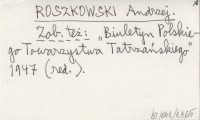 ROSZKOWSKI Andrzej.
Zob. też: „Biuletyn Polskie-
go Towarzystwa Tatrzańskiego"
1947 (red.).